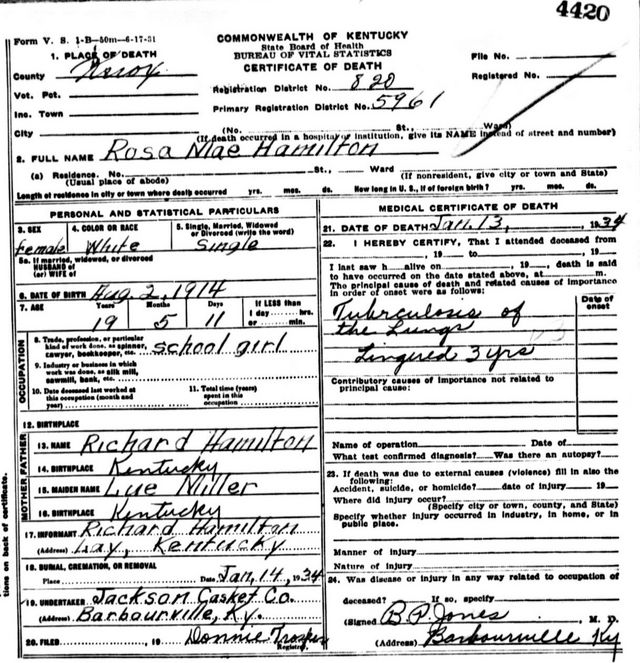 4420
Form V. S. 1-B—50m—6-17-31
COMMONWEALTH OF KENTUCKY
State Board of Health
BUREAU OF VITAL STATISTICS
CERTIFICATE OF DEATH
1. PLACE OF DEATH
County Knox
Vot. Pct.
Inc. Town
City
Registration District No. 820
Primary Registration District No. 5961
File No.
Registered No.
(No. St., Ward)
(If death occurred in a hospital or institution, give its NAME instead of street and number)
2. FULL NAME Rosa Mae Hamilton
(a) Residence. No. St., Ward
(Usual place of abode) (If nonresident, give city or town and State)
Length of residence in city or town where death occurred yrs. mos. ds. How long in U. S., if of foreign birth? yrs. mos. ds.
PERSONAL AND STATISTICAL PARTICULARS
3. SEX 4. COLOR OR RACE 5. Single, Married, Widowed
or Divorced (write the word)
Female White Single
5a. If married, widowed, or divorced
HUSBAND of
(or) WIFE of
6. DATE OF BIRTH Aug. 2, 1914
7. AGE Years Months Days If LESS than
1 day hrs.
19 5 11 or min.
OCCUPATION
8. Trade, profession, or particular
kind of work done, as spinner,
sawyer, bookkeeper, etc. school girl
9. Industry or business in which
work was done, as silk mill,
sawmill, bank, etc.
10. Date deceased last worked at
this occupation (month and
year)
11. Total time (years)
spent in this
occupation
12. BIRTHPLACE
FATHER
13. NAME Richard Hamilton
14. BIRTHPLACE Kentucky
MOTHER
15. MAIDEN NAME Lue Miller
16. BIRTHPLACE Kentucky
17. INFORMANT Richard Hamilton
(Address) Lay, Kentucky
18. BURIAL, CREMATION, OR REMOVAL
Place Date Jan, 14, 1934
19. UNDERTAKER Jackson Casket Co.
Barbourville, Ky.
20. FILED , 19 Donnie Trosper
Registrar.
MEDICAL CERTIFICATE OF DEATH
21. DATE OF DEATH Jan. 13, 1934
22. I HEREBY CERTIFY, That I attended deceased from
, 19 to , 19
I last saw h alive on , 19 , death is said
to have occurred on the date stated above, at m.
The principal cause of death and related causes of importance
in order of onset were as follows:
Date of
onset
Tuberculosis of
the Lungs
Lingered 3 yrs
Contributory causes of importance not related to
principal cause:
Name of operation Date of
What test confirmed diagnosis? Was there an autopsy?
23. If death was due to external causes (violence) fill in also the
following:
Accident, suicide, or homicide? date of injury 19
Where did injury occur?
(Specify city or town, county, and State)
Specify whether injury occurred in industry, in home, or in
public place.
Manner of injury
Nature of injury
24. Was disease or injury in any way related to occupation of
deceased? If so, specify
(Signed B. P. Jones M. D.
(Address) Barbourville Ky
tions on back of certificate.